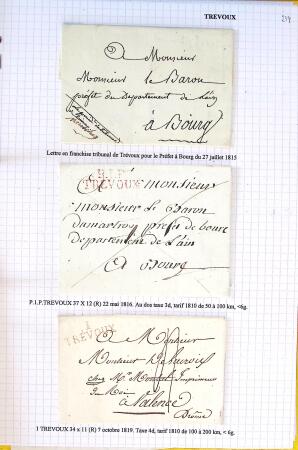 TREVOUX
A Monsieur
Monsieur le Baron
préfet du Departement de l'ain
à Bourg
Lettre en franchise tribunal de Trévoux pour le Préfet à Bourg du 27 juillet 1815
P.1.P.
TREVOUX
A monsieur
monsieur Le Baron
dumartroy prefet de bourg
Departement de L'ain
A Bourg
P.1P.TREVOUX 37 X 12 (R) 22 mai 1816. Au dos taxe 3d, tarif 1810 de 50 à 100 km, <6g.
1
TREVOUX
A Monsieur
Monsieur
chez Mr. Imprimeur
du Roi
à Valence
Drôme
1 TREVOUX 34 x 11 (R) 7 octobre 1819. Taxe 4d, tarif 1810 de 100 à 200 km, < 6g.